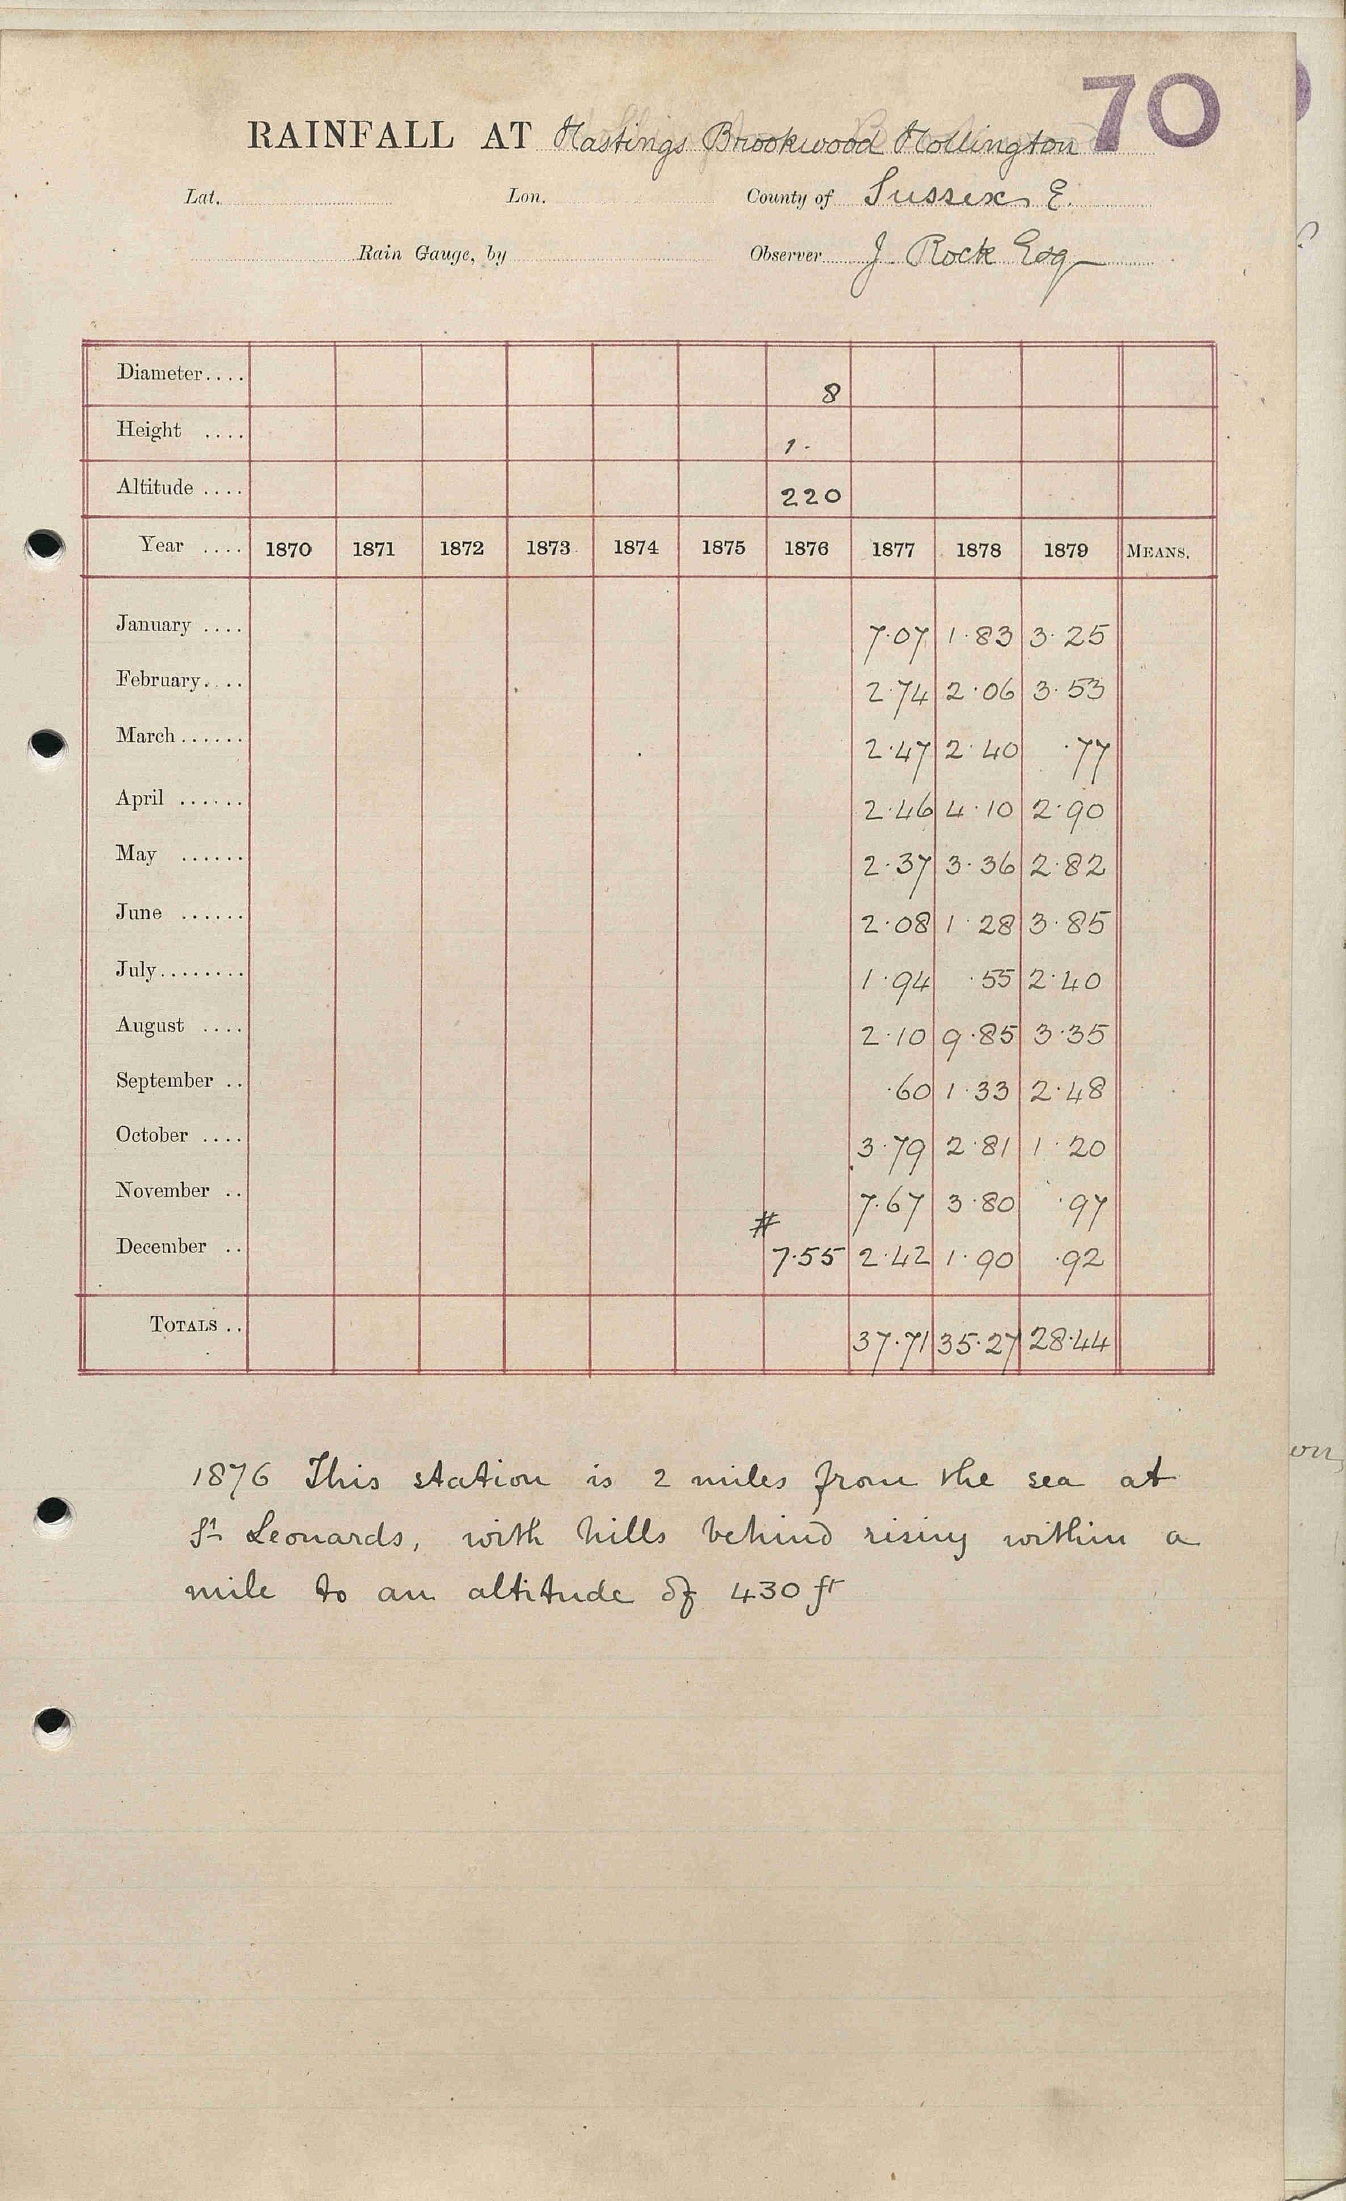 70
RAINFALL AT Hastings Brookwood Hollington
Lat. Lon. County of Sussex E.
Rain Gauge, by Observer J. Rock Esq
Diameter.... 8
Height .... 1.
Altitude .... 220
Year .... 1870 1871 1872 1873 1874 1875 1876 1877 1878 1879 MEANS.
January .... 7.07 1.83 3.25
February.... 2.74 2.06 3.53
March...... 2.47 2.40 .77
April ...... 2.46 4.10 2.90
May ...... 2.37 3.36 2.82
June ...... 2.08 1.28 3.85
July........ 1.94 .55 2.40
August .... 2.10 9.85 3.35
September .. .60 1.33 2.48
October .... 3.79 2.81 1.20
November .. 7.67 3.80 .97
#
December .. 7.55 2.42 1.90 .92
TOTALS .. 37.71 35.27 28.44
1876 This station is 2 miles from the sea at
St Leonards, with hills behind rising within a
mile to an altitude of 430 ft
on